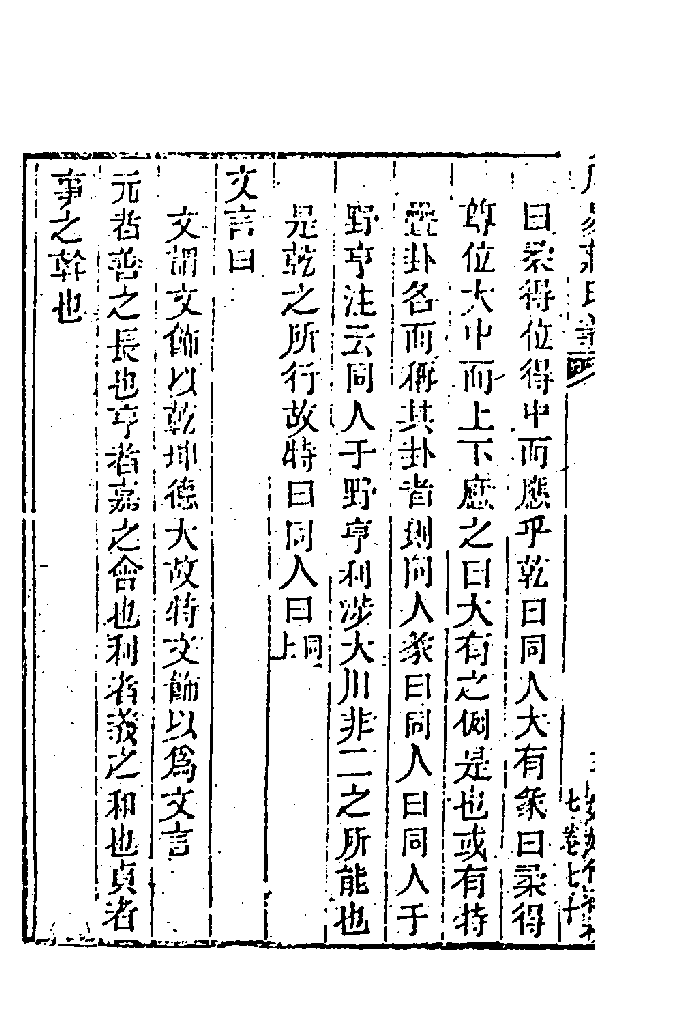 曰柔得位得中而應乎乾曰同人大有彖曰柔得
尊位大中而上下應之曰大有之例是也或有特
疊卦名而稱其卦者則同人彖曰同人曰同人于
野亨注云同人于野亨利涉大川非二之所能也
是乾之所行故特曰同人曰同上
文言曰
文謂文飾以乾坤德大故特文飾以爲文言
元者善之長也亨者嘉之會也利者義之和也貞者
事之幹也